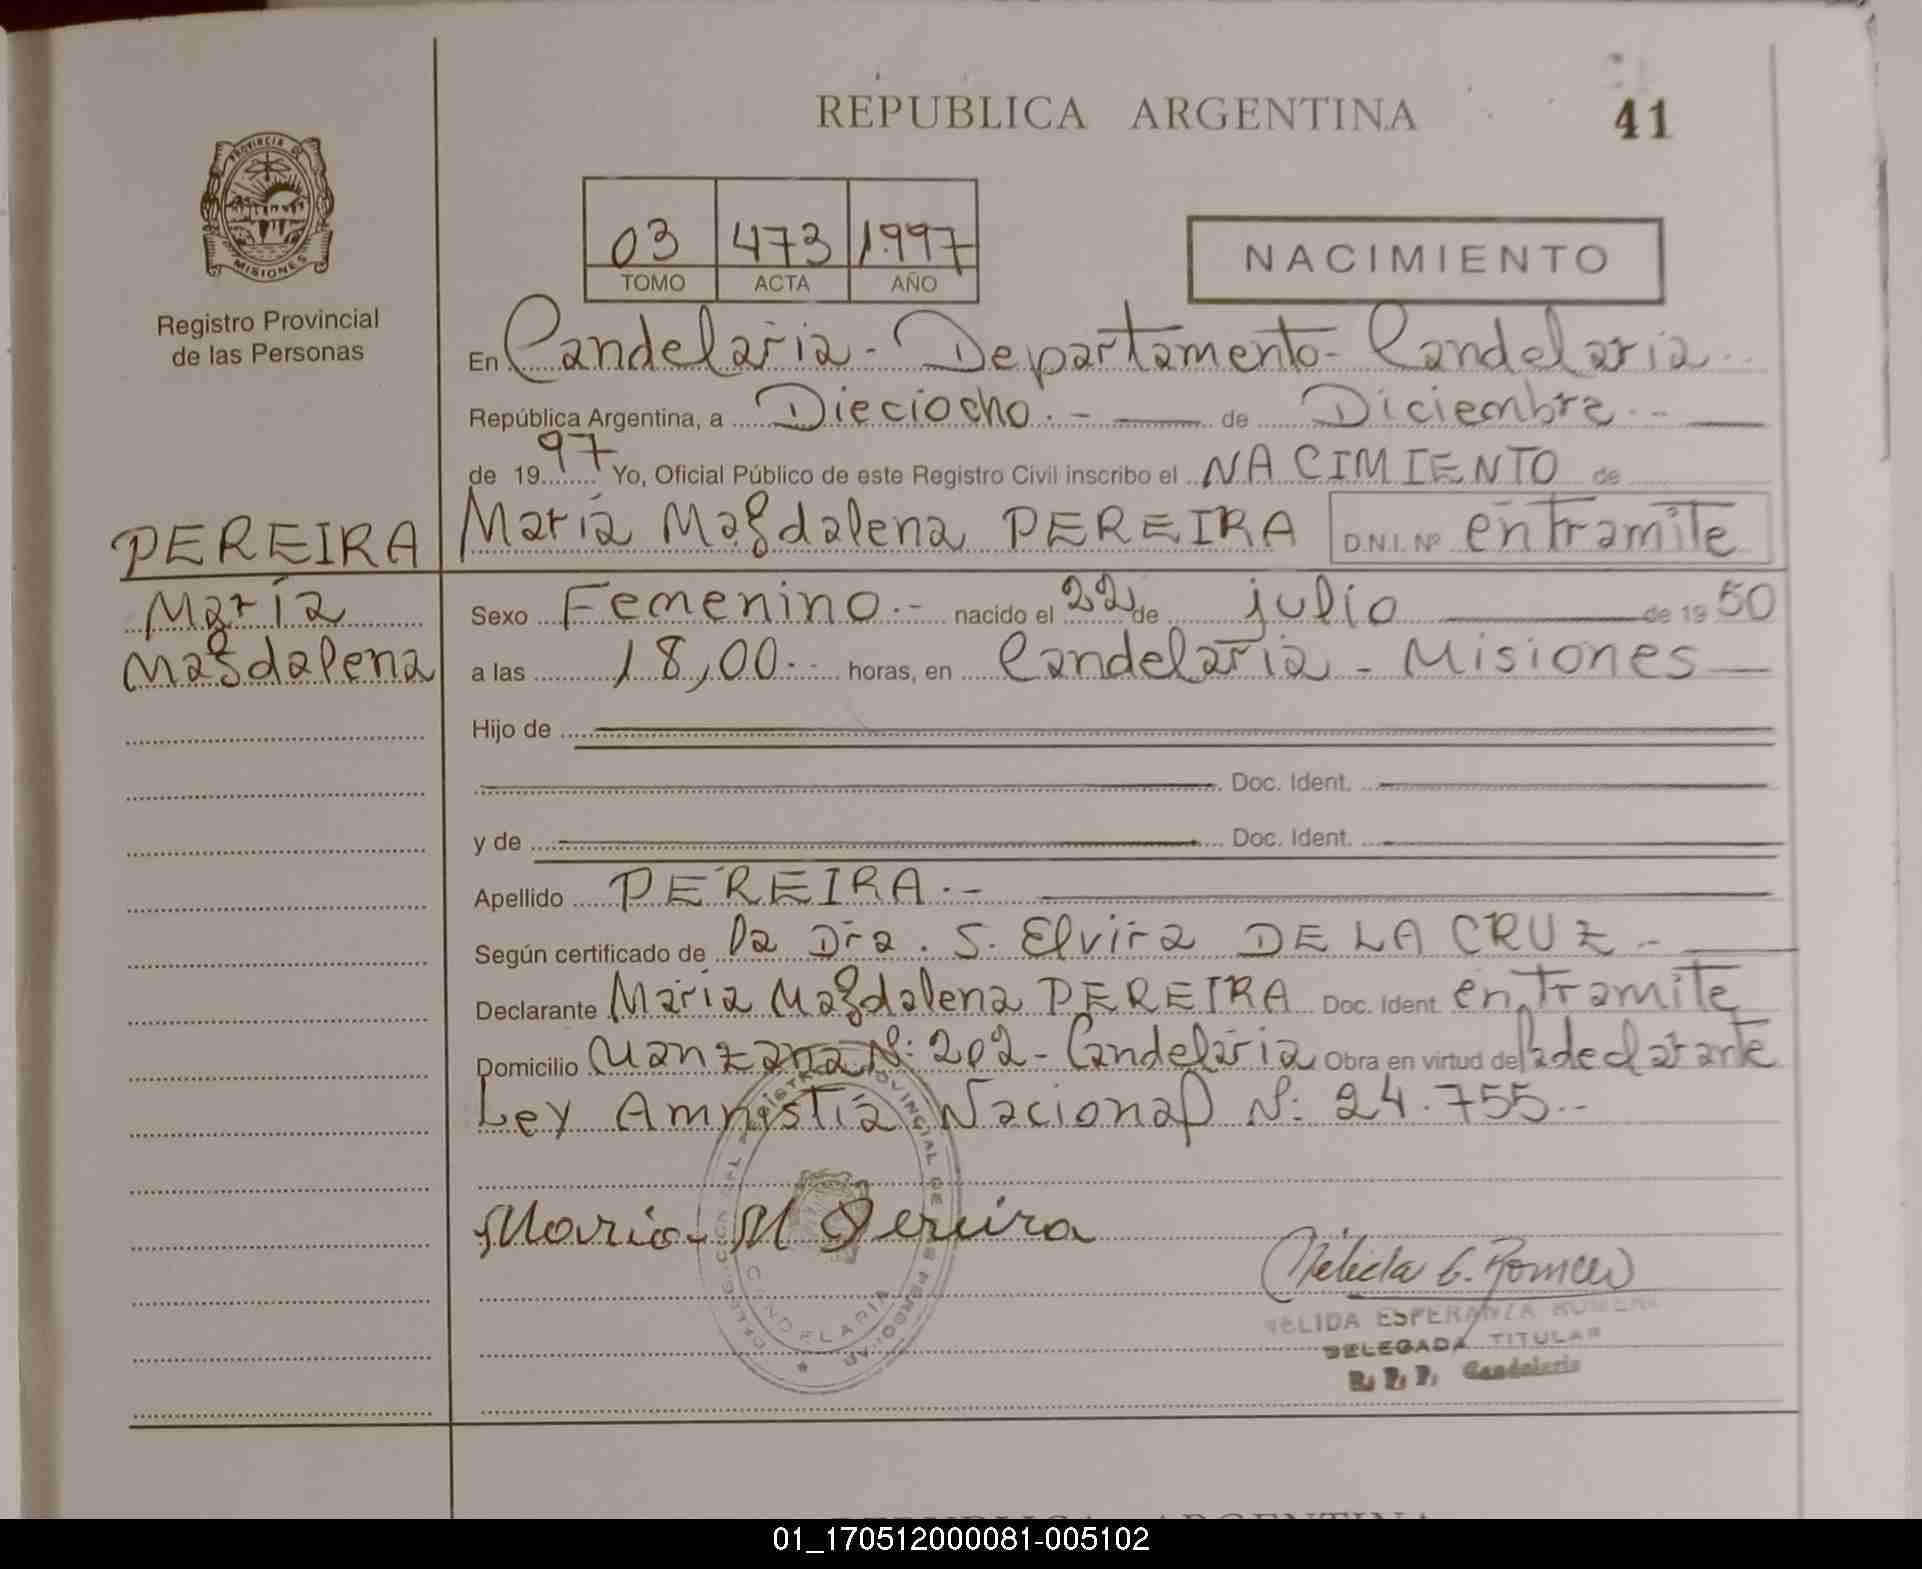 REPUBLICA ARGENTINA
41
PROVINCIA DE
MISIONES
Registro Provincial
de las Personas
03 473 1997
TOMO ACTA AÑO
NACIMIENTO
En Candelaria - Departamento - Candelaria
República Argentina, a Dieciocho.- de Diciembre.-
de 1997 Yo, Oficial Público de este Registro Civil inscribo el NACIMIENTO de
PEREIRA
María
Magdalena
María Magdalena PEREIRA D.N.I. Nº en Tramite
Sexo Femenino.- nacido el 22 de julio de 1950
a las 18,00.- horas, en Candelaria - Misiones
Hijo de
Doc. Ident.
y de Doc. Ident.
Apellido PEREIRA.-
Según certificado de la Dra. S. Elvira DE LA CRUZ.-
Declarante María Magdalena PEREIRA Doc. Ident. en Tramite
Domicilio Manzana Nº: 202 - Candelaria Obra en virtud de la declarante
Ley Amnistía Nacional Nº: 24.755.-
Maria M Pereira
CANDELARIA
Nélida E. Romero
NÉLIDA ESPERANZA ROMERO
DELEGADA TITULAR
R. P. P. Candelaria
REPUBLICA ARGENTINA
01_170512000081-005102